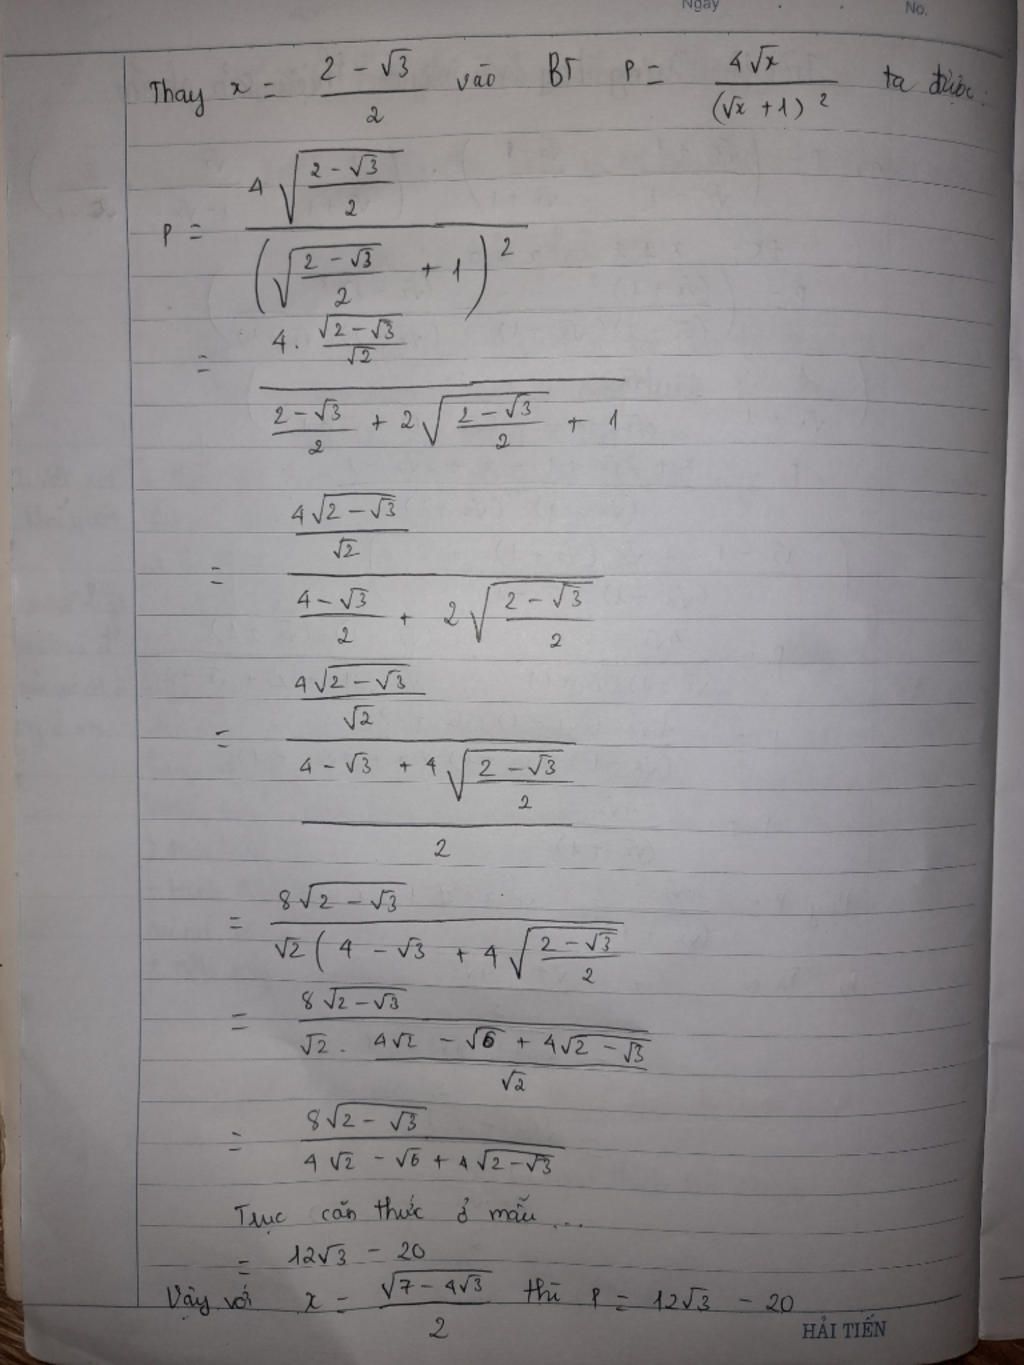 Ngày . . No.
Thay x = (2 - √3)/2 vào BT P = 4√x/(√x + 1)² ta được:
P = 4√((2 - √3)/2) / (√((2 - √3)/2) + 1)²
= (4 . √(2 - √3)/√2) / ((2 - √3)/2 + 2√((2 - √3)/2) + 1)
= (4√(2 - √3)/√2) / ((4 - √3)/2 + 2√((2 - √3)/2))
= (4√(2 - √3)/√2) / ((4 - √3 + 4√((2 - √3)/2))/2)
= 8√(2 - √3) / √2 (4 - √3 + 4√((2 - √3)/2)
= 8√(2 - √3) / (√2 . (4√2 - √6 + 4√(2 - √3))/√2)
= 8√(2 - √3) / (4√2 - √6 + 4√(2 - √3))
Trục căn thức ở mẫu...
= 12√3 - 20
Vậy với x = √(7 - 4√3)/2 thì P = 12√3 - 20
HẢI TIẾN